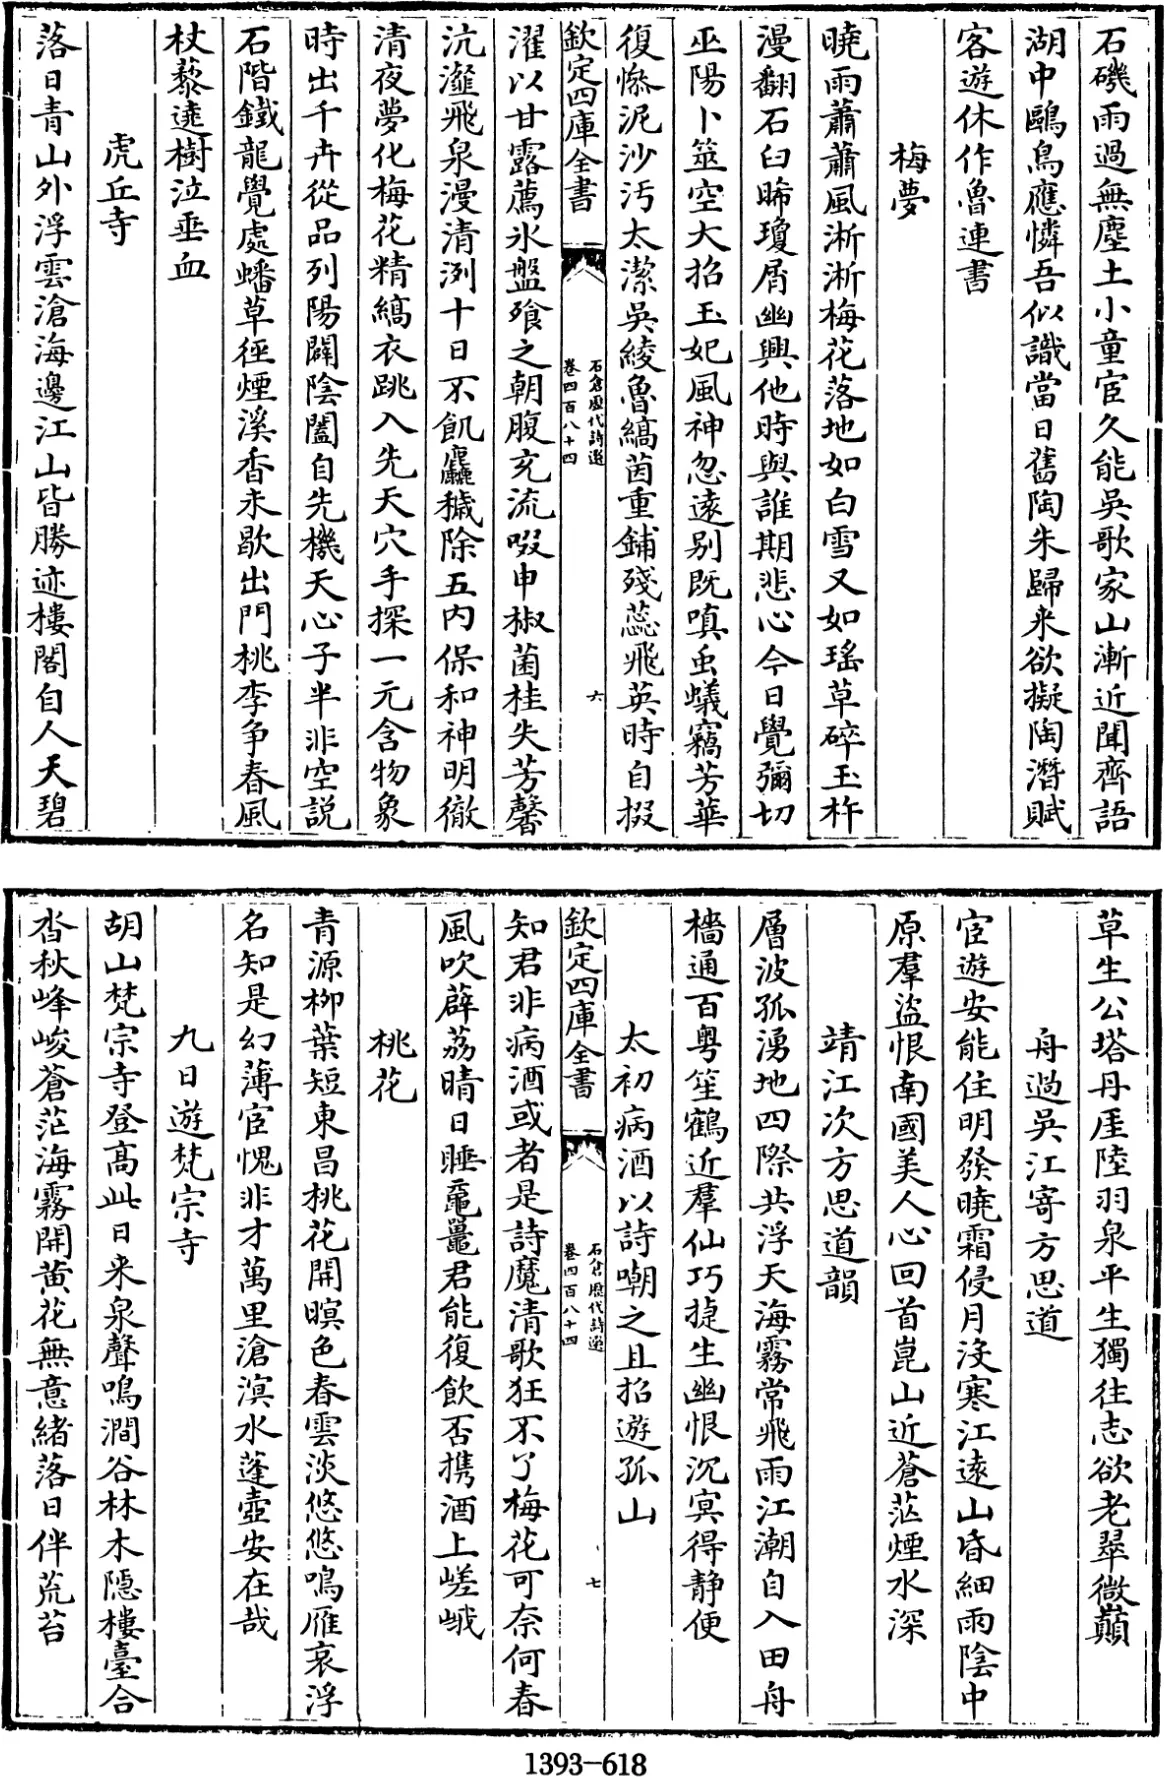 石磯雨過無塵土小童宦久能吳歌家山漸近聞齊語
湖中鷗鳥應憐吾似識當日舊陶朱歸来欲擬陶潛賦
客遊休作魯連書
梅夢
曉雨蕭蕭風淅淅梅花落地如白雪又如瑶草碎玉杵
漫翻石臼晞瓊屑幽興他時與誰期悲心今日覺彌切
巫陽卜筮空大招玉妃風神忽遠别既嗔虫蟻竊芳華
復慘泥沙汚太潔吳綾魯縞茵重鋪殘蕊飛英時自掇
欽定四庫全書
石倉歷代詩選
卷四百八十四
六
濯以甘露薦氷盤飱之朝腹充流啜申椒菌桂失芳馨
沆瀣飛泉漫清洌十日不飢麤穢除五内保和神明徹
清夜夢化梅花精縞衣跳入先天穴手探一元含物象
時出千卉從品列陽闢陰闔自先機天心子半非空説
石階鐵龍覺處蟠草徑煙溪香未歇出門桃李争春風
杖藜遶樹泣垂血
虎丘寺
落日青山外浮雲滄海邊江山皆勝迹樓閣自人天碧
草生公塔丹厓陸羽泉平生獨往志欲老翠微巔
舟過吳江寄方思道
宦遊安能住明發曉霜侵月沒寒江遠山昏細雨陰中
原羣盜恨南國美人心回首崑山近蒼茫煙水深
靖江次方思道韻
層波孤湧地四際共浮天海霧常飛雨江潮自入田舟
檣通百粤笙鶴近羣仙巧捷生幽恨沉冥得静便
太初病酒以詩嘲之且招遊孤山
欽定四庫全書
石倉歷代詩選
卷四百八十四
七
知君非病酒或者是詩魔清歌狂不了梅花可奈何春
風吹薜荔晴日睡黿鼉君能復飲否携酒上嵯峨
桃花
青源柳葉短東昌桃花開暝色春雲淡悠悠鳴雁哀浮
名知是幻薄宦愧非才萬里滄溟水蓬壺安在哉
九日遊梵宗寺
胡山梵宗寺登高此日来泉聲鳴澗谷林木隱樓臺合
沓秋峰峻蒼茫海霧開黄花無意緒落日伴荒苔
1393-618